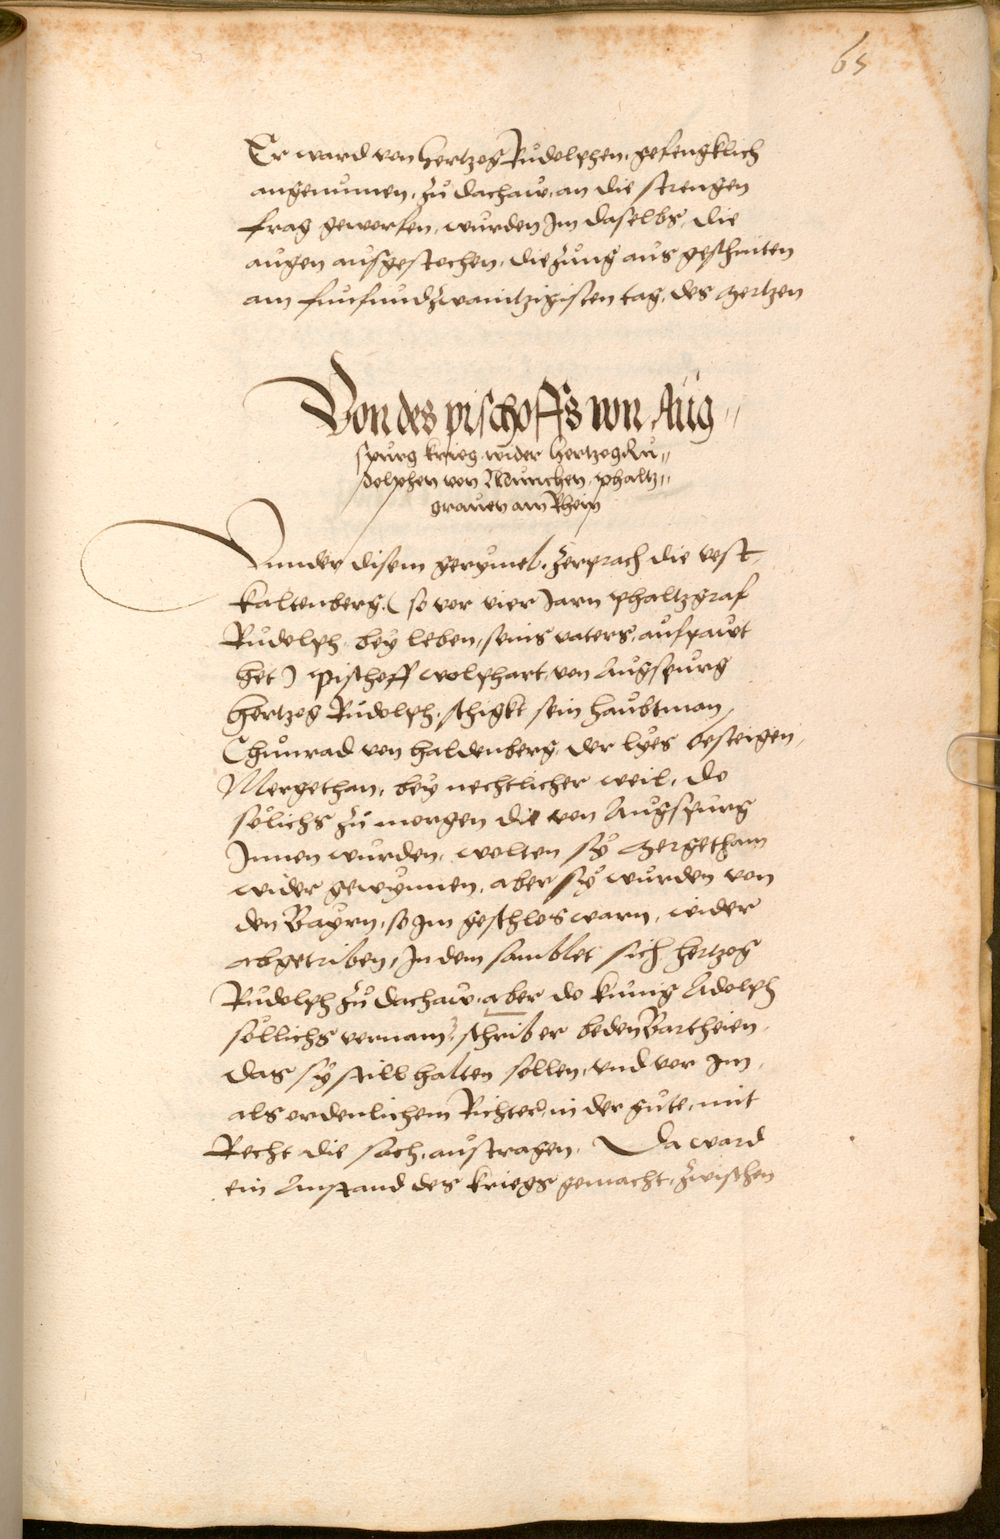 65
Er ward von hertzog Růdolphen, gefengklich
angenumen, zů dachaw, an die strengen
frag geworfen, wurden Im daselbs, die
augen ausgestochen, die zung aus geschniten
am funfundzwaintzigisten tag, des mertzen
Von des pischoffs von Aug〃
spurg krieg wider hertzog Ru〃
dolphen von Munchen, phaltz〃
graven am Rhein
Vnnder disem gerymel, zerprach die vest
kaltenberg, (so vor vier Jarn phaltzgraf
Růdolph, bey leben, seins vaters, aufpawt
het) pischoff wolphart, von Augspurg
hertzog Rudolph, schigkt sein haubtman,
Chunrad von haldenberg, der lyes besteigen,
Mergethan, bey nechtlicher weil, do
sólichs zů morgen die von Augspurg
Innen wurden, wolten sy mergetham
wider gewynnen, aber sy wurden von
den Bayrn, so Im geschlos warn, wider
abgetriben, In dem samblet sich hertzog
Rudolph zů dachaw, aber do kunig Adolph
sóllichs vernam, schrib er beden Partheien,
das sy still halten sollen, vnd vor Im,
als ordenlichem Richter, in der gute, mit
Recht die sach, austragen, Da ward
ein Anstand des kriegs gemacht, zwischen